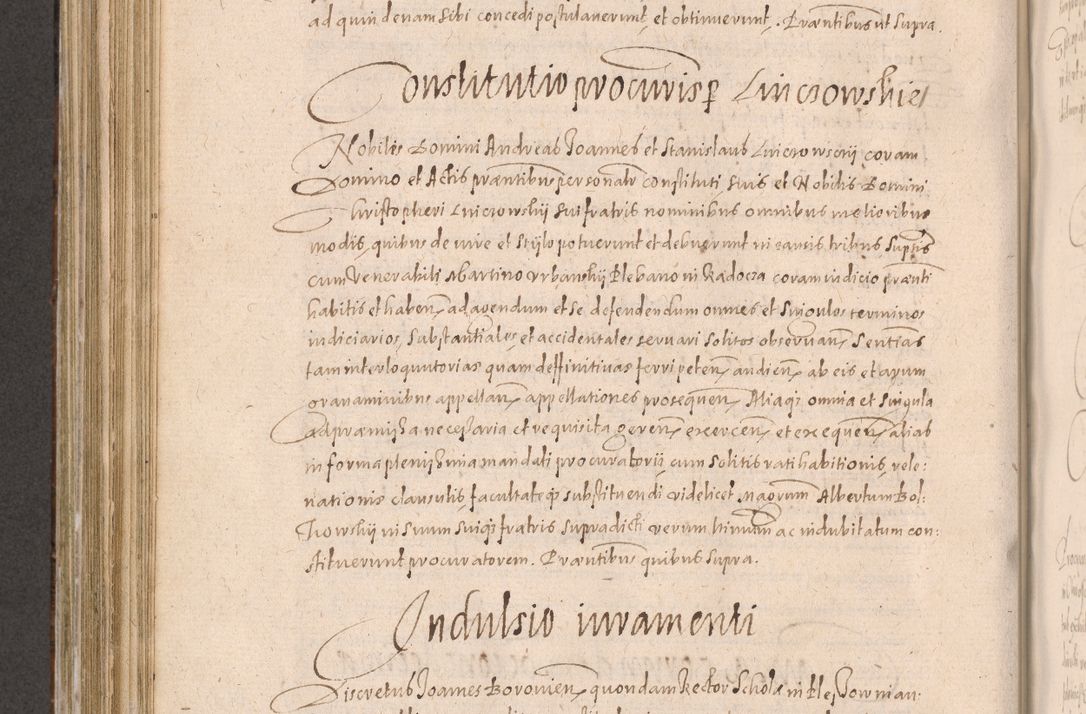 ad quindenam sibi concedi postulaverunt, et obtinuerunt. Præntibus ut supra.
Constitutio procuris per Luiczowskie
Nobiles Domini Andreas Joannes et Stanislaus Luiczowsczij coram
Domino et Actis præntibus personalr constituti suis et Nobilis Domini
Christopheri Luiczowskij sui fratris nominibus omnibus melioribus
modis, quibus de iure et stijlo potuerunt et debuerunt in causis tribus supsis
cum Venerabili Martino Vrbanskij Plebano in Radocza coram iudicio prænti
habitis et haben. ad agendum et se defendendum omnes et singulos terminos
iudiciarios, substantiales, et accidentales servari solitos observan. Sentias
tam interloquutorias quam deffinitivas ferri peten. audien. ab eis et earum
gravaminibus appellan. appellationes prosequen. Aliaq3 omnia et singula
ad præmissa necessaria et requisita geren. exercen. et exequen. alias
in forma plenissima mandati procuratorij, cum solitis ratihabitionis, rele:
vationis clausulis, facultateq3 substituendi videlicet Magrum Albertum Bol:
howskij in suum suiq3 fratris supradicti verum limum ac indubitatum con:
stituerunt procuratorem. Præntibus quibus supra.
Indulsio iuramenti
Discretus Joannes Borovien. quondam Rector Scholæ in